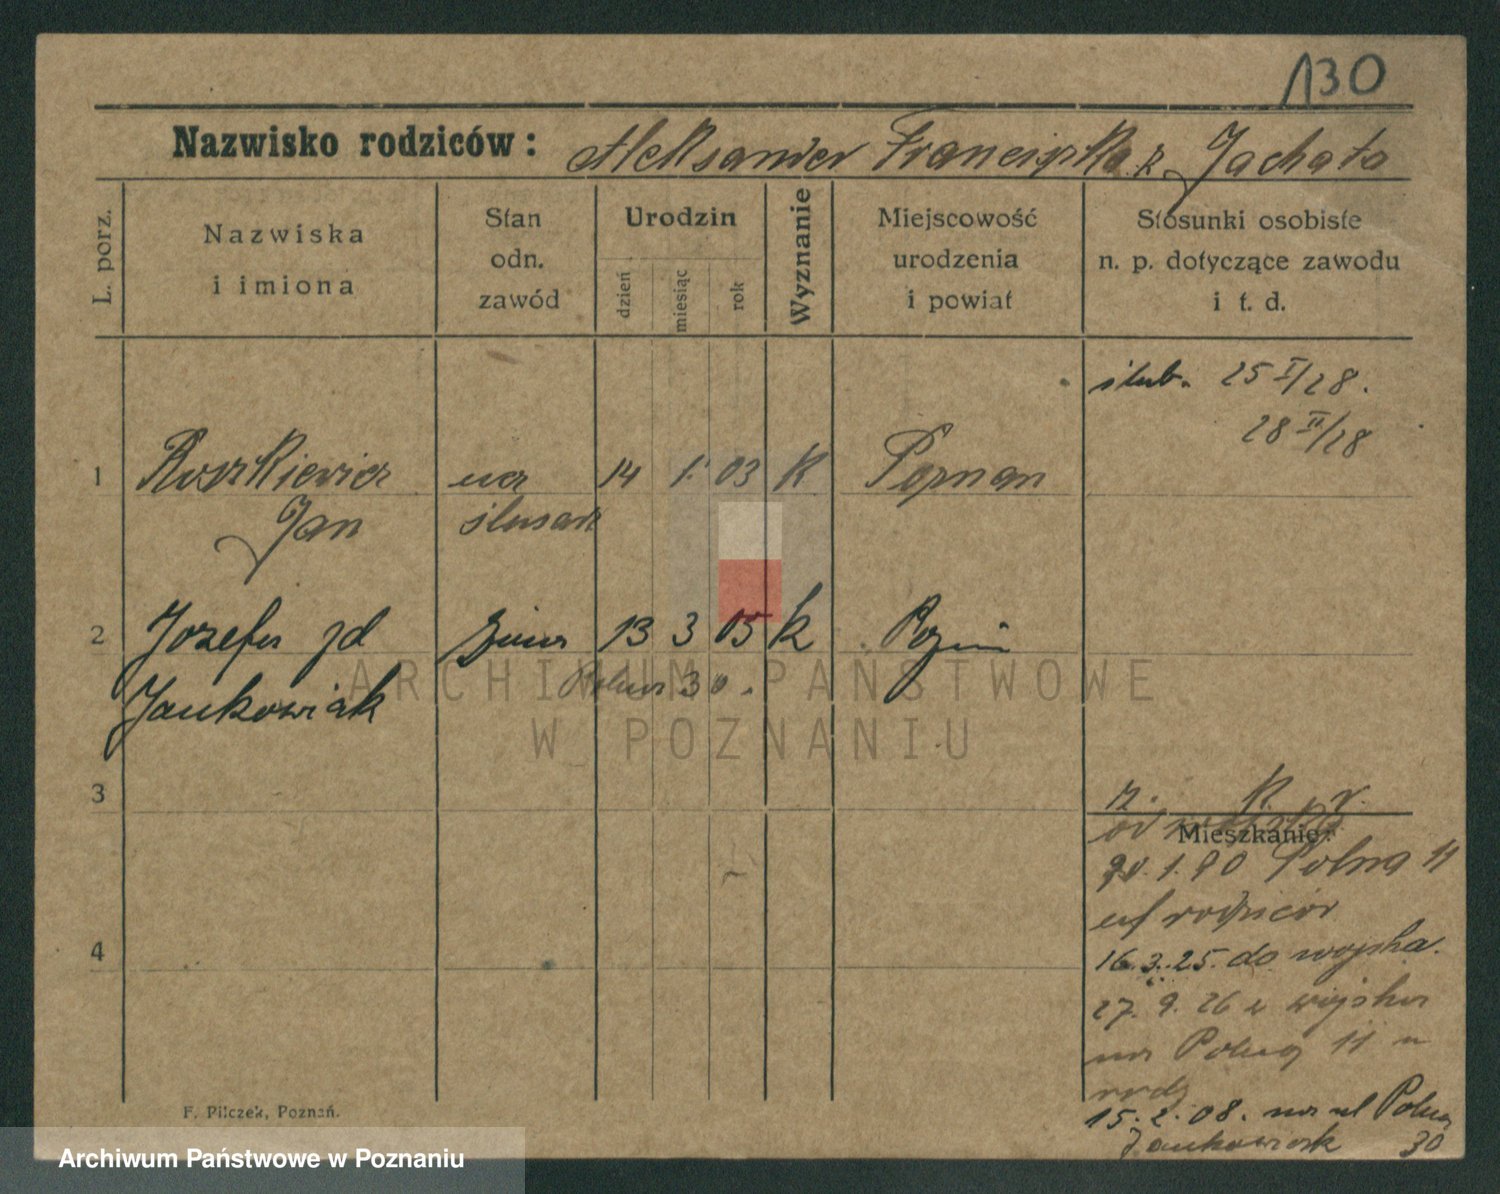 130
Nazwisko rodziców: Aleksander Franciszka z Jachata
L. porz.
Nazwiska
i imiona
Stan
odn.
zawód
Urodzin
dzień
miesiąc
rok
Wyznanie
Miejscowość
urodzenia
i powiat
Stosunki osobiste
n. p. dotyczące zawodu
i t. d.
ślub. 25 I/28.
28 II/28
1 Ruszkiewicz ucz 14 1. 03 K Poznan
Jan ślusarz
2 Jozefa zd żona 13 3 05 K Pozn
Jankowiak
Polna 30.
3
z. K. r.
Mieszkanie:
od
1. 20 Polna 11
rodziców
4
16.3.25. do wojska.
27. 9. 26 z wojska
na Polną 11 u
rodz
15. 2. 08. na ul Polna
Jankowiak 30
F. Pilczek, Poznań.
ARCHIWUM PAŃSTWOWE
W POZNANIU
Archiwum Państwowe w Poznaniu